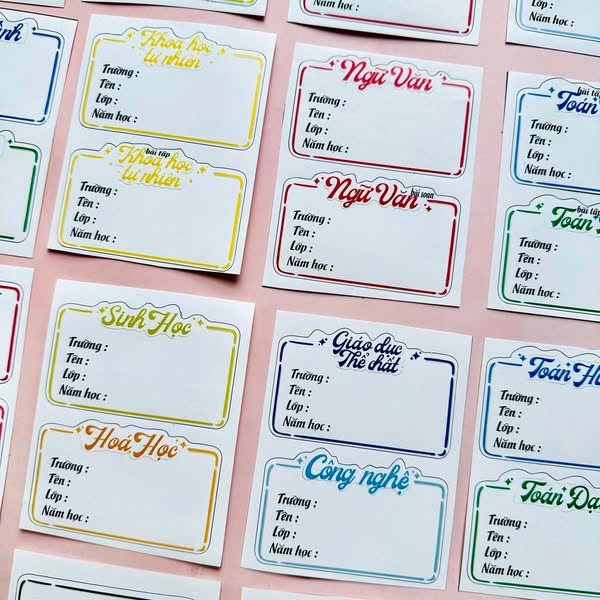 Năm học :
Khoa học
tự nhiên
Trường :
Tên :
Lớp :
Năm học :
bài tập
Khoa học
tự nhiên
Trường :
Tên :
Lớp :
Năm học :
Ngữ Văn
Trường :
Tên :
Lớp :
Năm học :
Ngữ Văn
bài soạn
Trường :
Tên :
Lớp :
Năm học :
bài tập
Toán
Trường :
Tên :
Lớp :
Năm học :
bài tập
Toán
Trường :
Tên :
Lớp :
Năm học :
Sinh Học
Trường :
Tên :
Lớp :
Năm học :
Hoá Học
Trường :
Tên :
Lớp :
Năm học :
Giáo dục
Thể chất
Trường :
Tên :
Lớp :
Năm học :
Công nghệ
Trường :
Tên :
Lớp :
Năm học :
Toán
Trường :
Tên :
Lớp :
Năm học :
Toán
Trường :
Tên :
Lớp :
Năm học :